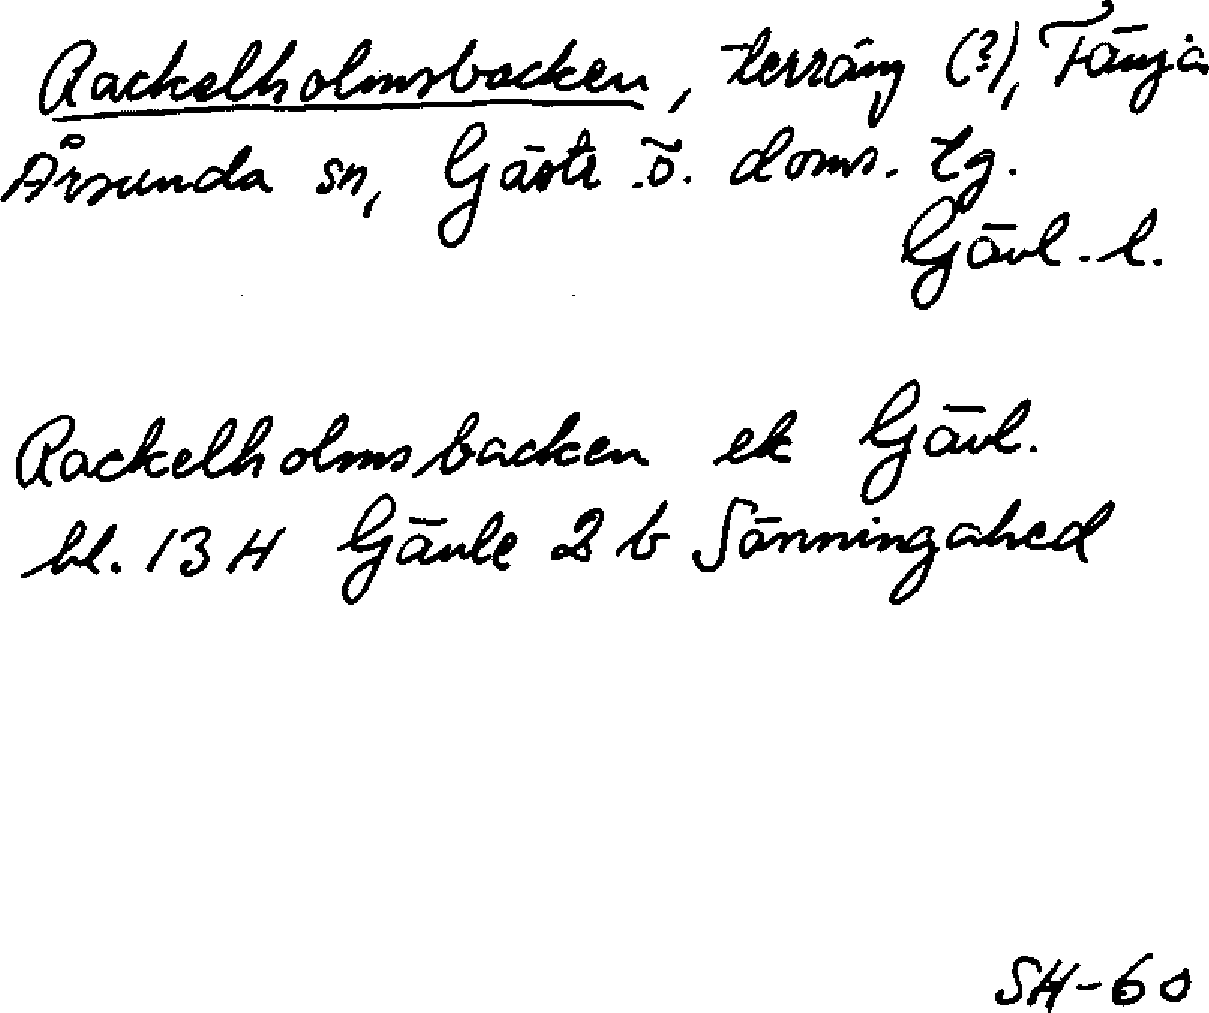 Rackelholmsbacken, terräng (?), Fänja
Årsunda sn, Gästr. ö. doms. tg.
Gävl. l.
Rackelholmsbacken ek Gävl.
bl. 13 H Gävle 2 b Sänningahed
SH-60